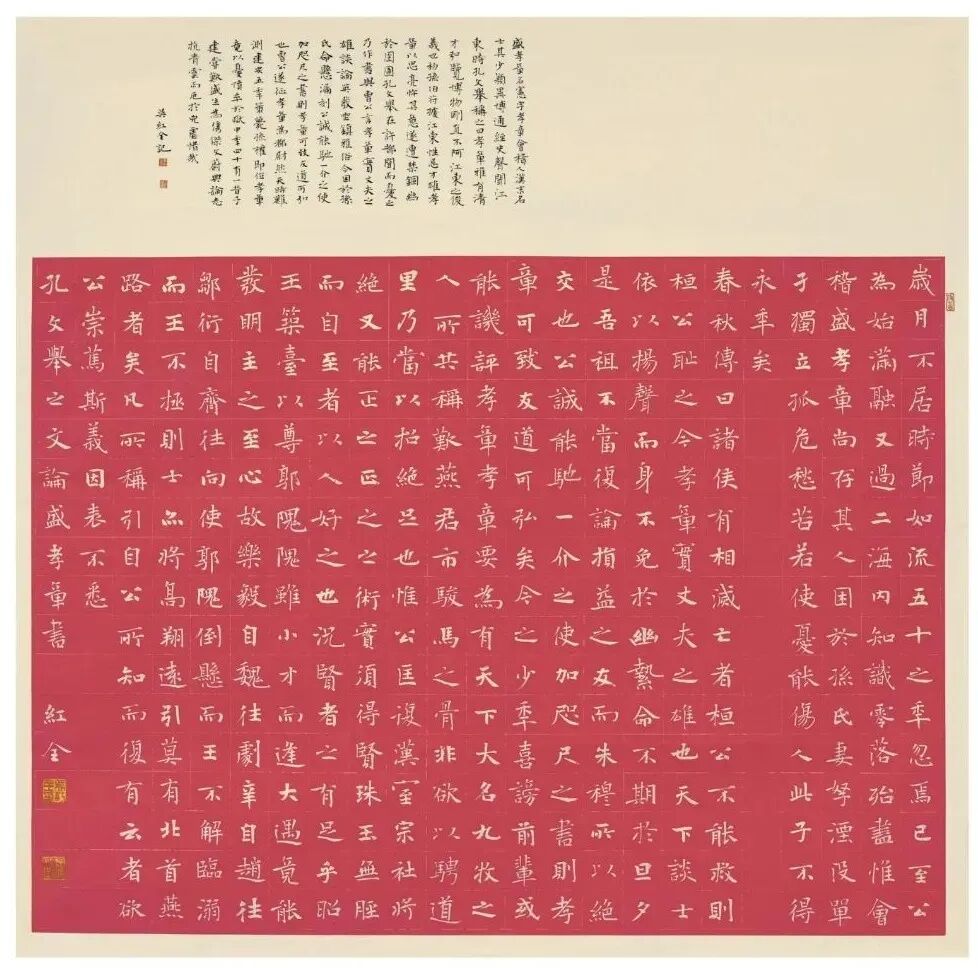 盛孝章名憲字孝章會稽人漢末名
士其少穎異博通經史聲聞江
東時孔文舉稱之曰孝章雅有清
才和博物剛直不阿江東之俊
義也初孫伯符據江東性忌才雄孝
章以忠亮忤其意遂遭禁錮幽
於囹圄孔文舉在許都聞而憂之
乃作書與曹公言孝章實丈夫之
雄談論英發雲鎮雅俗今困於孫
氏命懸漏刻公誠能馳一介之使
加咫尺之書則孝章可致友道可弘
也曹公遂征孝章為都尉然天時難
測建安五年策薨孫權即位孝章
竟以憂憤卒於獄中年四十有一昔子
建嘗歎盛生為儔傑文蔚與論
抗貴重而厄於惜哉
吳紅全記
歲月不居時節如流五十之年忽焉已至公
為始滿融又過二海內知識零落殆盡惟會
稽盛孝章尚存其人困於孫氏妻孥湮沒單
孑獨立孤危愁苦若使憂能傷人此子不得
永年矣
春秋傳曰諸侯有相滅亡者桓公不能救則
桓公恥之今孝章實丈夫之雄也天下談士
依以揚聲而身不免於幽縶命不期於旦夕
是吾祖不當復論損益之友而朱穆所以絕
交也公誠能馳一介之使加咫尺之書則孝
章可致友道可弘矣今之少年喜謗前輩或
能譏評孝章孝章要為有天下大名九牧之
人所共稱歎燕君市駿馬之骨非欲以騁道
里乃當以招絕足也惟公匡復漢室宗社將
絕又能正之正之之術實須得賢珠玉無脛
而自至者以人好之也況賢者之有足乎昭
王築臺以尊郭隗隗雖小才而逢大遇竟能
發明主之至心故樂毅自魏往劇辛自趙往
鄒衍自齊往向使郭隗倒懸而王不解臨溺
而王不拯則士亦將高翔遠引莫有北首燕
路者矣凡所稱引自公所知而復有云者欲
公崇篤斯義因表不悉
孔文舉之文論盛孝章書 紅全